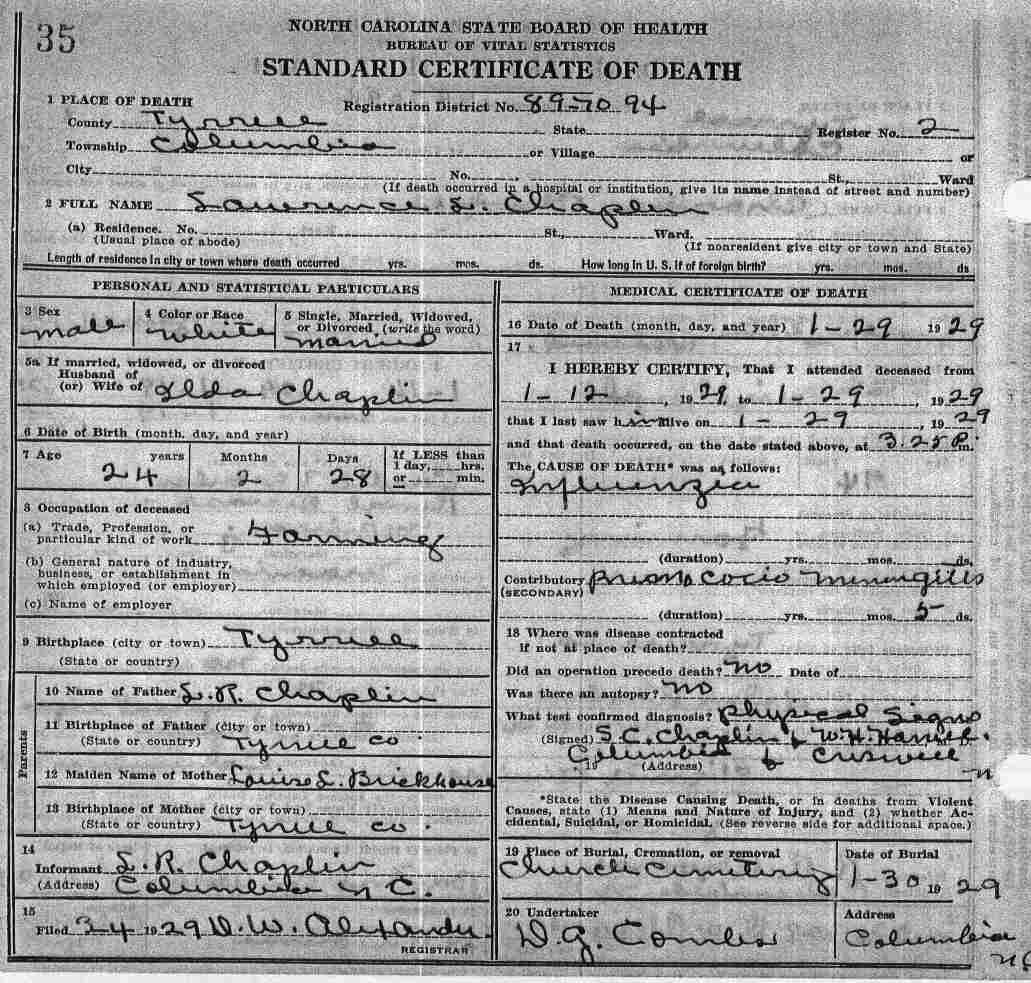 35
NORTH CAROLINA STATE BOARD OF HEALTH
BUREAU OF VITAL STATISTICS
STANDARD CERTIFICATE OF DEATH
1 PLACE OF DEATH Registration District No. 89-70 94
County Tyrrell State Register No. 2
Township Columbia or Village or
City No. St., Ward
(If death occurred in a hospital or institution, give its name instead of street and number)
2 FULL NAME Lawrence L. Chaplin
(a) Residence. No. St., Ward.
(Usual place of abode) (If nonresident give city or town and State)
Length of residence in city or town where death occurred yrs. mos. ds. How long in U. S. if of foreign birth? yrs. mos. ds
PERSONAL AND STATISTICAL PARTICULARS
3 Sex 4 Color or Race 5 Single, Married, Widowed,
or Divorced (write the word)
male white married
5a If married, widowed, or divorced
Husband of
(or) Wife of Ilda Chaplin
6 Date of Birth (month, day, and year)
7 Age years Months Days If LESS than
1 day, hrs.
or min.
24 2 28
8 Occupation of deceased
(a) Trade, Profession, or
particular kind of work Farming
(b) General nature of industry,
business, or establishment in
which employed (or employer)
(c) Name of employer
9 Birthplace (city or town) Tyrrell
(State or country)
Parents
10 Name of Father L. R. Chaplin
11 Birthplace of Father (city or town)
(State or country) Tyrrell Co.
12 Maiden Name of Mother Louise L. Brickhouse
13 Birthplace of Mother (city or town)
(State or country) Tyrrell Co.
14
Informant L. R. Chaplin
(Address) Columbia N C.
15
Filed 3 4 1929 W. Alexander
REGISTRAR
MEDICAL CERTIFICATE OF DEATH
16 Date of Death (month, day, and year) 1-29 1929
17
I HEREBY CERTIFY, That I attended deceased from
1-12, 1929, to 1-29, 1929
that I last saw him alive on 1-29, 1929
and that death occurred, on the date stated above, at 3.25 P.m.
The CAUSE OF DEATH* was as follows:
Influenzia
(duration) yrs. mos. ds.
Contributory Meningitis
(SECONDARY)
(duration) yrs. mos. 5 ds.
18 Where was disease contracted
if not at place of death?
Did an operation precede death? no Date of
Was there an autopsy? no
What test confirmed diagnosis? Physical Signs
(Signed) S.C. Chaplin & W.H.
Columbia & Creswell
, 19 (Address)
*State the Disease Causing Death, or in deaths from Violent
Causes, state (1) Means and Nature of Injury, and (2) whether Ac-
cidental, Suicidal, or Homicidal. (See reverse side for additional space.)
19 Place of Burial, Cremation, or removal Date of Burial
Church Cemetery 1-30 1929
20 Undertaker Address
D.G. Combs Columbia
N C